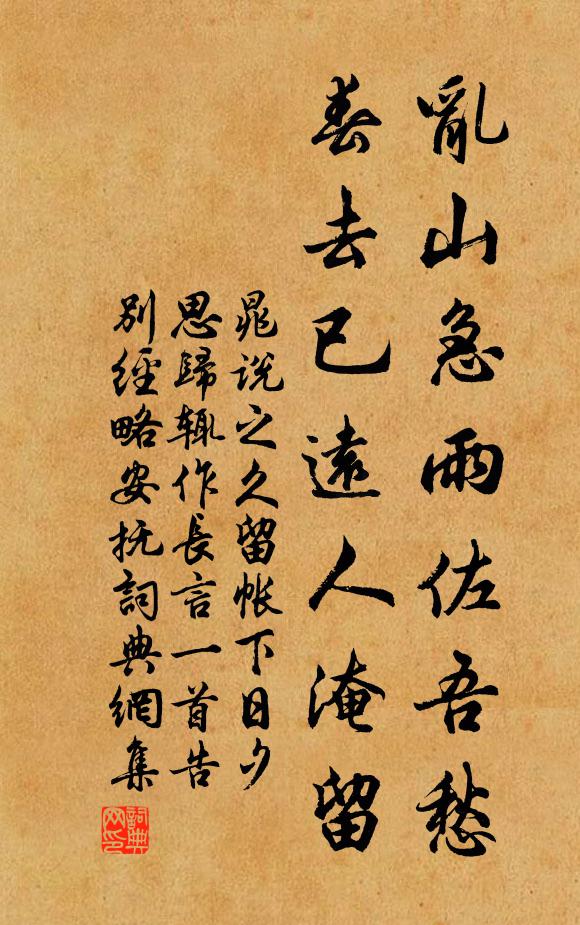 亂山急雨佐吾愁
春去已遠人淹留
晁說之久留帐下日夕
思歸辄作長言一首告
別經略安抚詞典網集
詞典网印